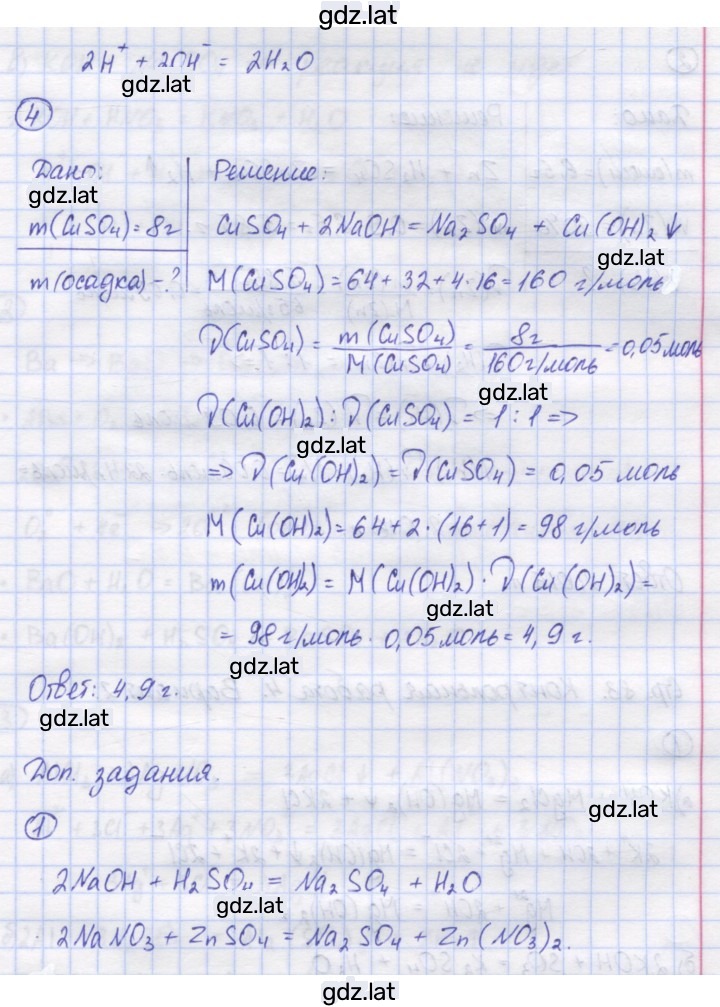 gdz.lat
2H⁺ + 2OH⁻ = 2H₂O
gdz.lat
4
Дано: Решение:
gdz.lat
m(CuSO₄)=8г CuSO₄ + 2NaOH = Na₂SO₄ + Cu(OH)₂↓
gdz.lat
m(осадка)-? M(CuSO₄)=64+32+4·16=160 г/моль
ν(CuSO₄) = m(CuSO₄)/M(CuSO₄) = 8г/160г/моль = 0,05моль
gdz.lat
ν(Cu(OH)₂):ν(CuSO₄) = 1:1 =>
gdz.lat
=> ν(Cu(OH)₂)=ν(CuSO₄) = 0,05 моль
M(Cu(OH)₂)=64+2·(16+1)=98г/моль
m(Cu(OH)₂) = M(Cu(OH)₂)·ν(Cu(OH)₂)=
gdz.lat
= 98г/моль·0,05моль=4,9г.
gdz.lat
Ответ: 4,9г.
gdz.lat
Доп. задания.
gdz.lat
1
2NaOH + H₂SO₄ = Na₂SO₄ + H₂O
gdz.lat
2NaNO₃ + ZnSO₄ = Na₂SO₄ + Zn(NO₃)₂.
gdz.lat